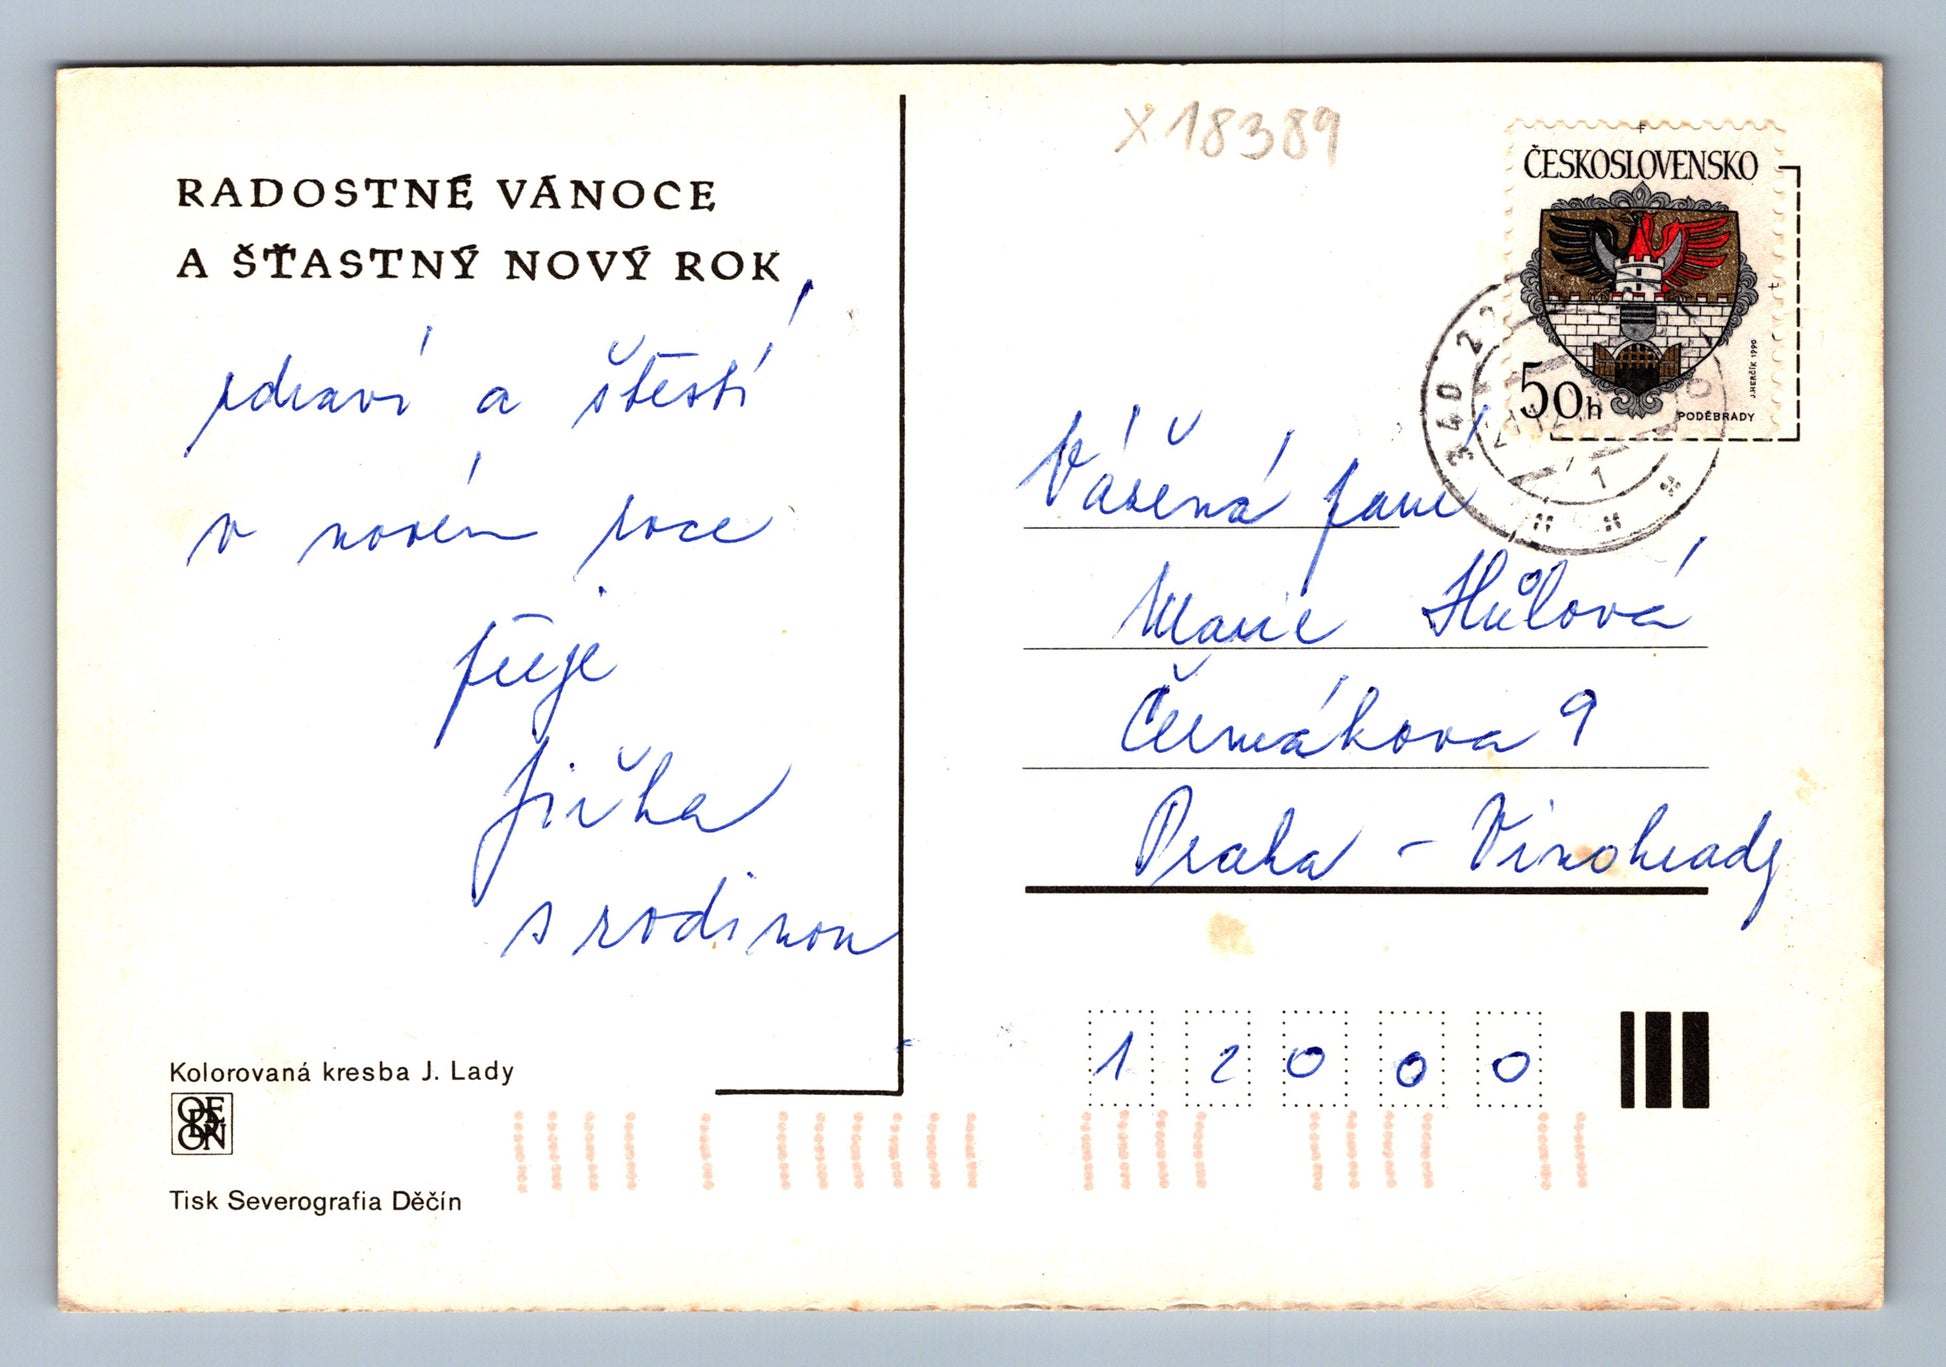 RADOSTNÉ VÁNOCE
A ŠŤASTNÝ NOVÝ ROK
zdraví a štěstí
v novém roce
přeje
Jiřka
s rodinou
Kolorovaná kresba J. Lady
ODEON
Tisk Severografia Děčín
X 18389
ČESKOSLOVENSKO
50h
PODĚBRADY
J.HERČÍK 1990
340 22
1
Vážená paní
Marie Hůlová
Čermákova 9
Praha - Vinohrady
12000